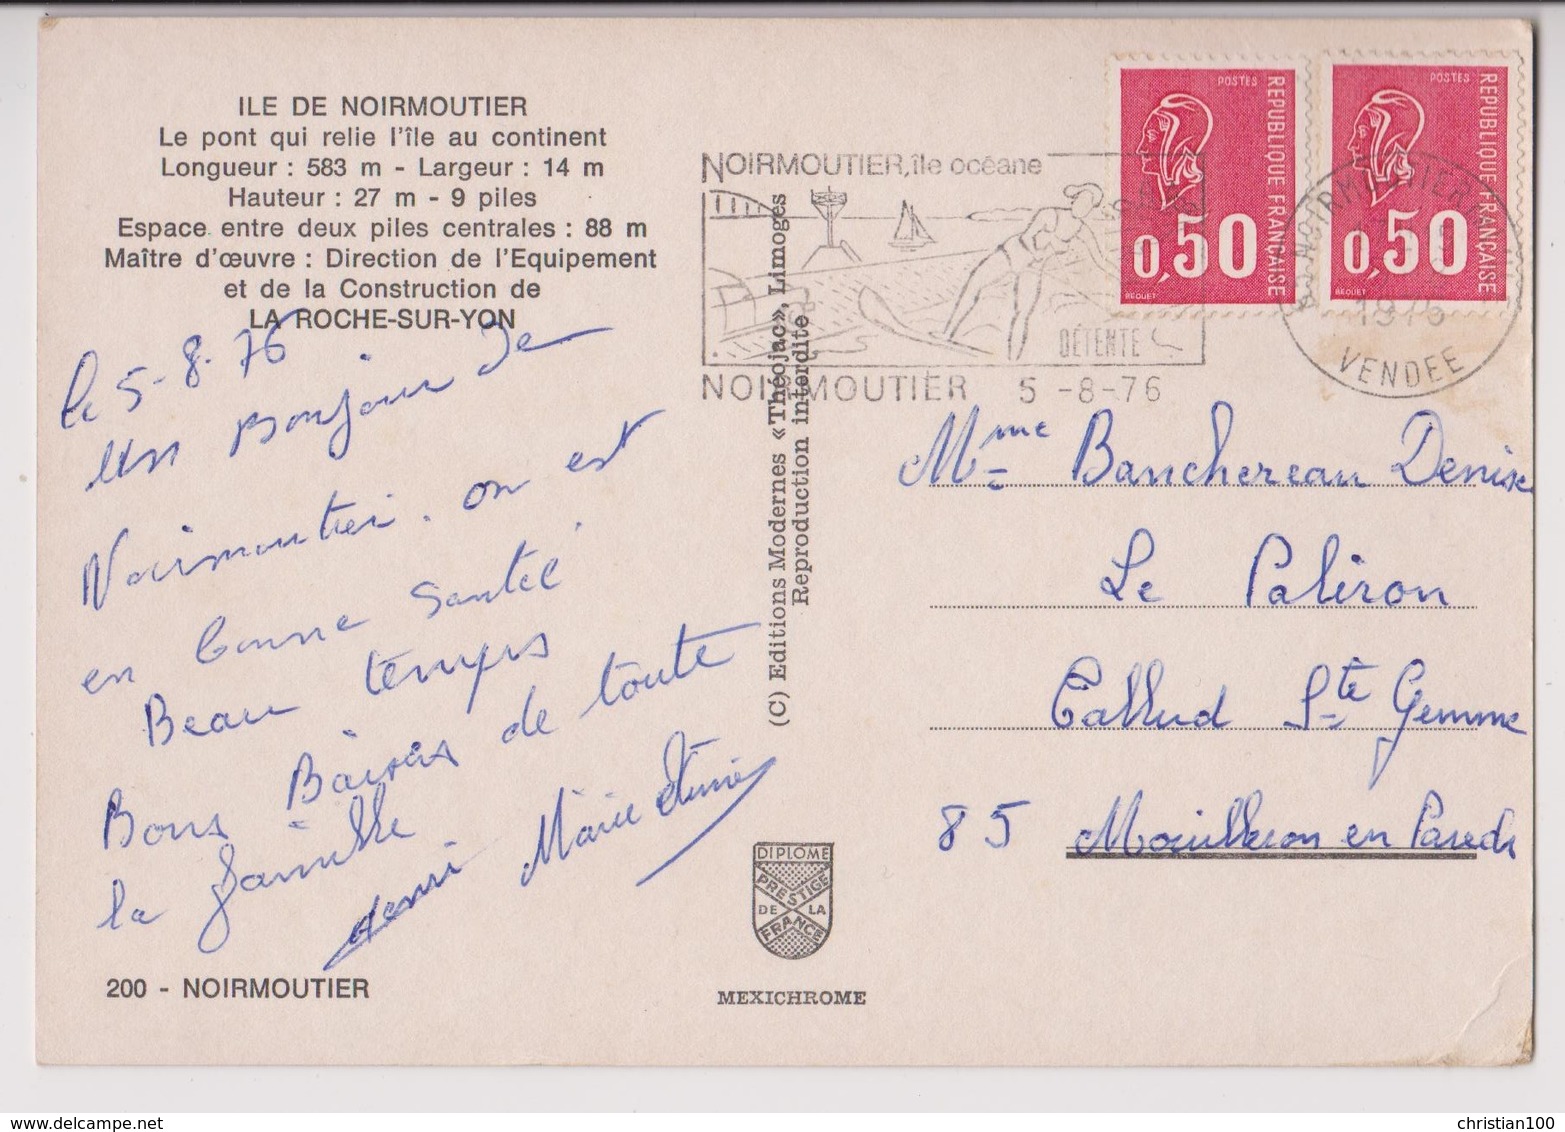 ILE DE NOIRMOUTIER
Le pont qui relie l'île au continent
Longueur : 583 m - Largeur : 14 m
Hauteur : 27 m - 9 piles
Espace entre deux piles centrales : 88 m
Maître d'œuvre : Direction de l'Equipement
et de la Construction de
LA ROCHE-SUR-YON
le 5-8-76
un Bonjour de
Noirmoutier. on est
en bonne santé
Beau temps
Bons Baisers de toute
la famille
Henri Marie
200 - NOIRMOUTIER
(C) Editions Modernes «Théojac», Limoges
Reproduction interdite
DIPLOME
PRESTIGE
DE LA
FRANCE
MEXICHROME
NOIRMOUTIER, île océane
DÉTENTE
NOIRMOUTIER 5 -8-76
POSTES
REPUBLIQUE FRANÇAISE
0,50
BEQUET
POSTES
REPUBLIQUE FRANÇAISE
0,50
NOIRMOUTIER
1976
VENDEE
Mme Banchereau Denise
Le Paliron
Tallud Ste Gemme
85 Mouilleron en Pareds
christian100